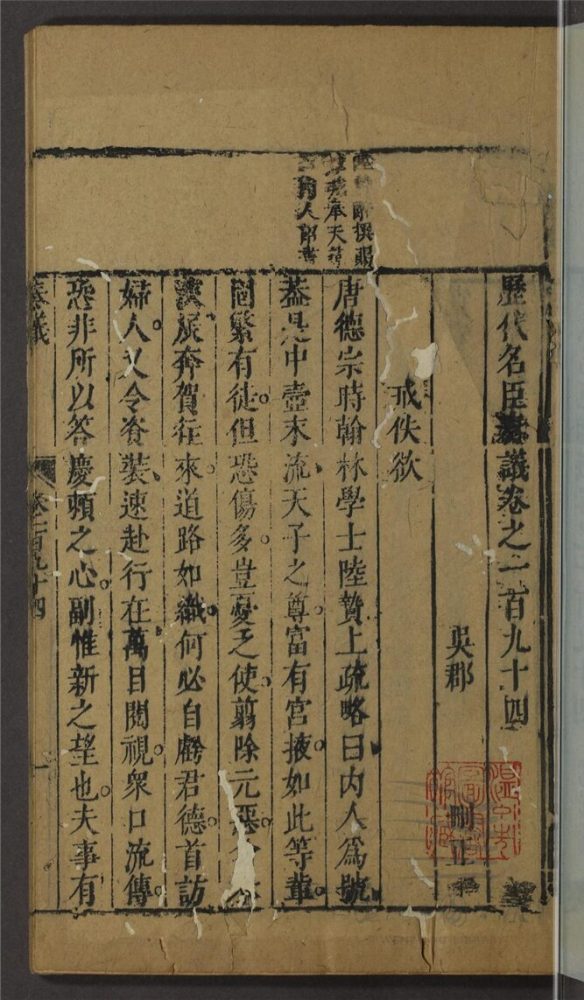 歷代名臣奏議卷之一百九十四
吳郡 刪正
戒佚欲
唐德宗時翰林學士陸贄上疏略曰內人爲號
葢是中壼末流天子之尊富有宮掖如此等輩
固繁有徒但恐傷多豈憂乏使翦除元惡
奔賀往來道路如織何必自虧君德首訪
婦人又令資裝速赴行在萬目閱視衆口流傳
恐非所以答慶賴之心副惟新之望也夫事有
奏議 卷一百九十四 一
撰賜
奉天尋
內人等書